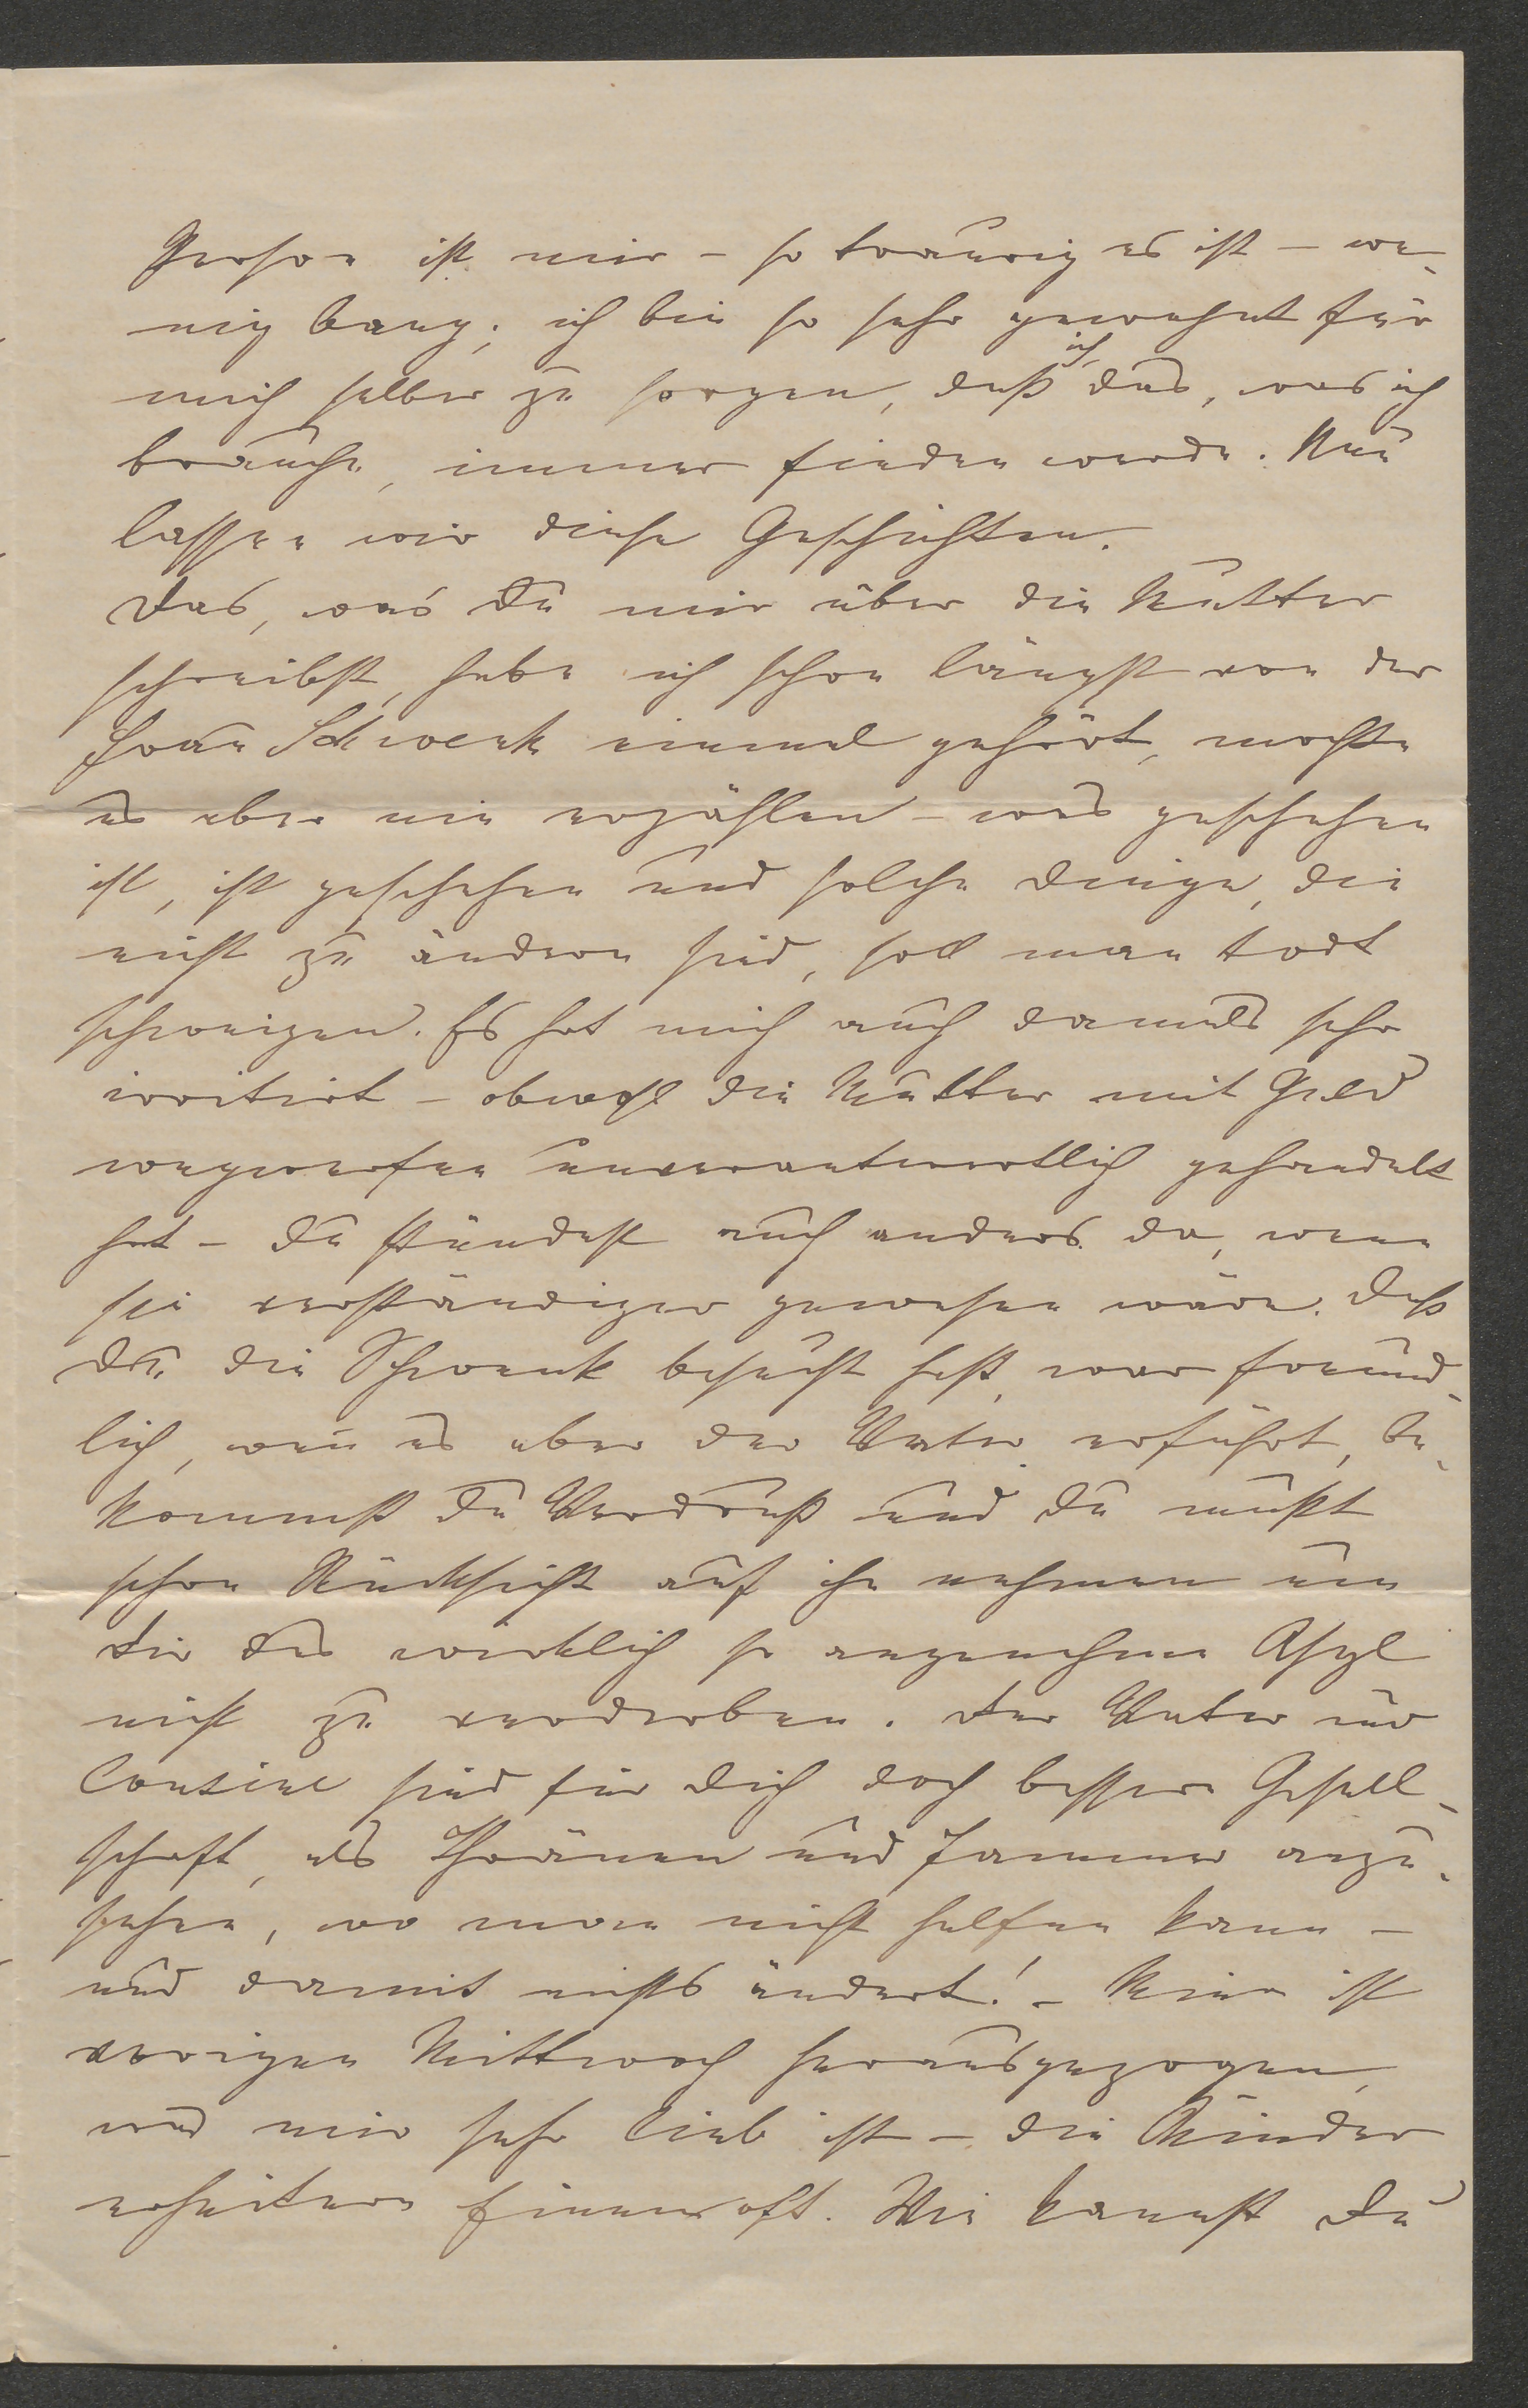 Person ist mir – so traurig es ist – we-
nig bang; ich bin so sehr gewohnt für
mich selber zu sorgen, daß ich das, was ich
brauche, immer finden werde. Nun
lassen wir diese Geschichten.
Das, was Du mir über die Mutter
schreibst, habe ich schon längst von der
Frau Schwenk einmal gehört, mochte
es aber nie erzählen – was geschehen
ist, ist geschehen und solche Dinge, die
nicht zu ändern sind, soll man todt
schweigen. Es hat mich auch damals sehr
irritirt – obwohl die Mutter mit Geld
wegwerfen unverantwortlich gehandelt
hat – Du stündest auch anders da, wenn
sie verständiger gewesen wäre. Daß
Du die Schwenk besucht hast, war freund-
lich, wenn es aber der Vater erführt, be-
kommst Du Verdruß und Du mußt
schon Rücksicht auf ihn nehmen um
Dir das wirklich so angenehme Asyl
nicht zu verderben. Der Vater und
Cousine sind für Dich doch bessere Gesell-
schaft, als Thränen und Jammer anzu-
sehen, wo man nicht helfen kann –
und damit nichts ändert! – ist
vorigen Mittwoch herausgezogen,
was mir sehr lieb ist – die Kinder
erheitern Einen oft. Wie kannst Du